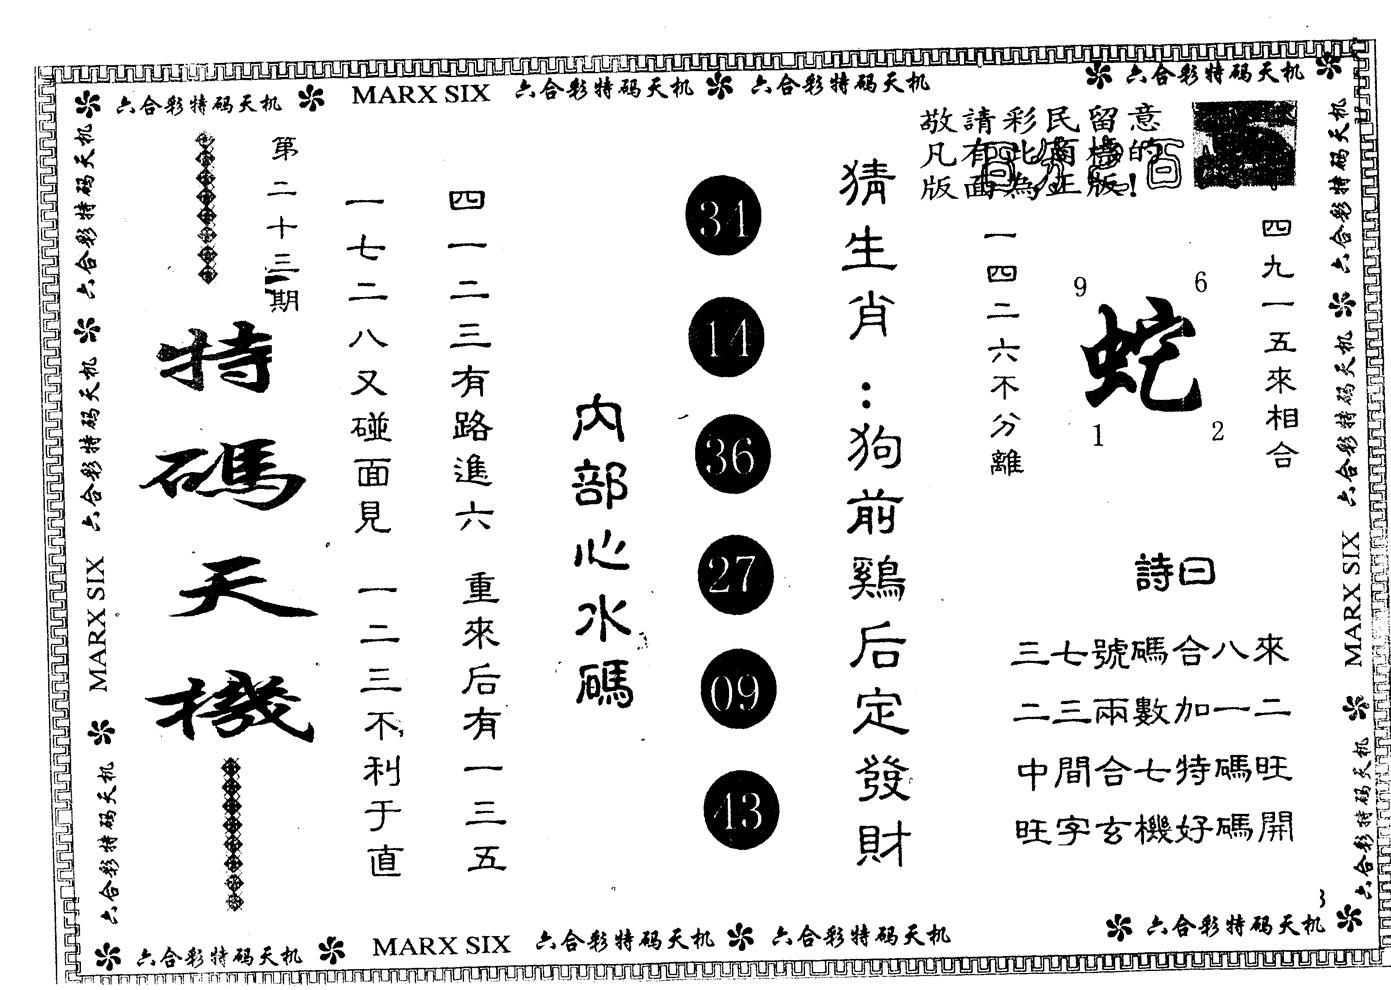 六合彩特码天机 MARX SIX 六合彩特码天机 六合彩特码天机 六合彩特码天机
敬請彩民留意
凡有此商標的
版面為正版!
四九一五來相合
9
6
蛇
1
2
一四二六不分離
詩曰
三七號碼合八來
二三兩數加一二
中間合七特碼旺
旺字玄機好碼開
猜生肖:狗前雞后定發財
34
14
36
27
09
43
內部心水碼
四一二三有路進六 重來后有一三五
一七二八又碰面見 一二三不利于直
第二十三期
特碼天機
六合彩特码天机
六合彩特码天机
MARX SIX
六合彩特码天机
六合彩特码天机
六合彩特码天机
MARX SIX
六合彩特码天机
六合彩特码天机 MARX SIX 六合彩特码天机 六合彩特码天机 六合彩特码天机